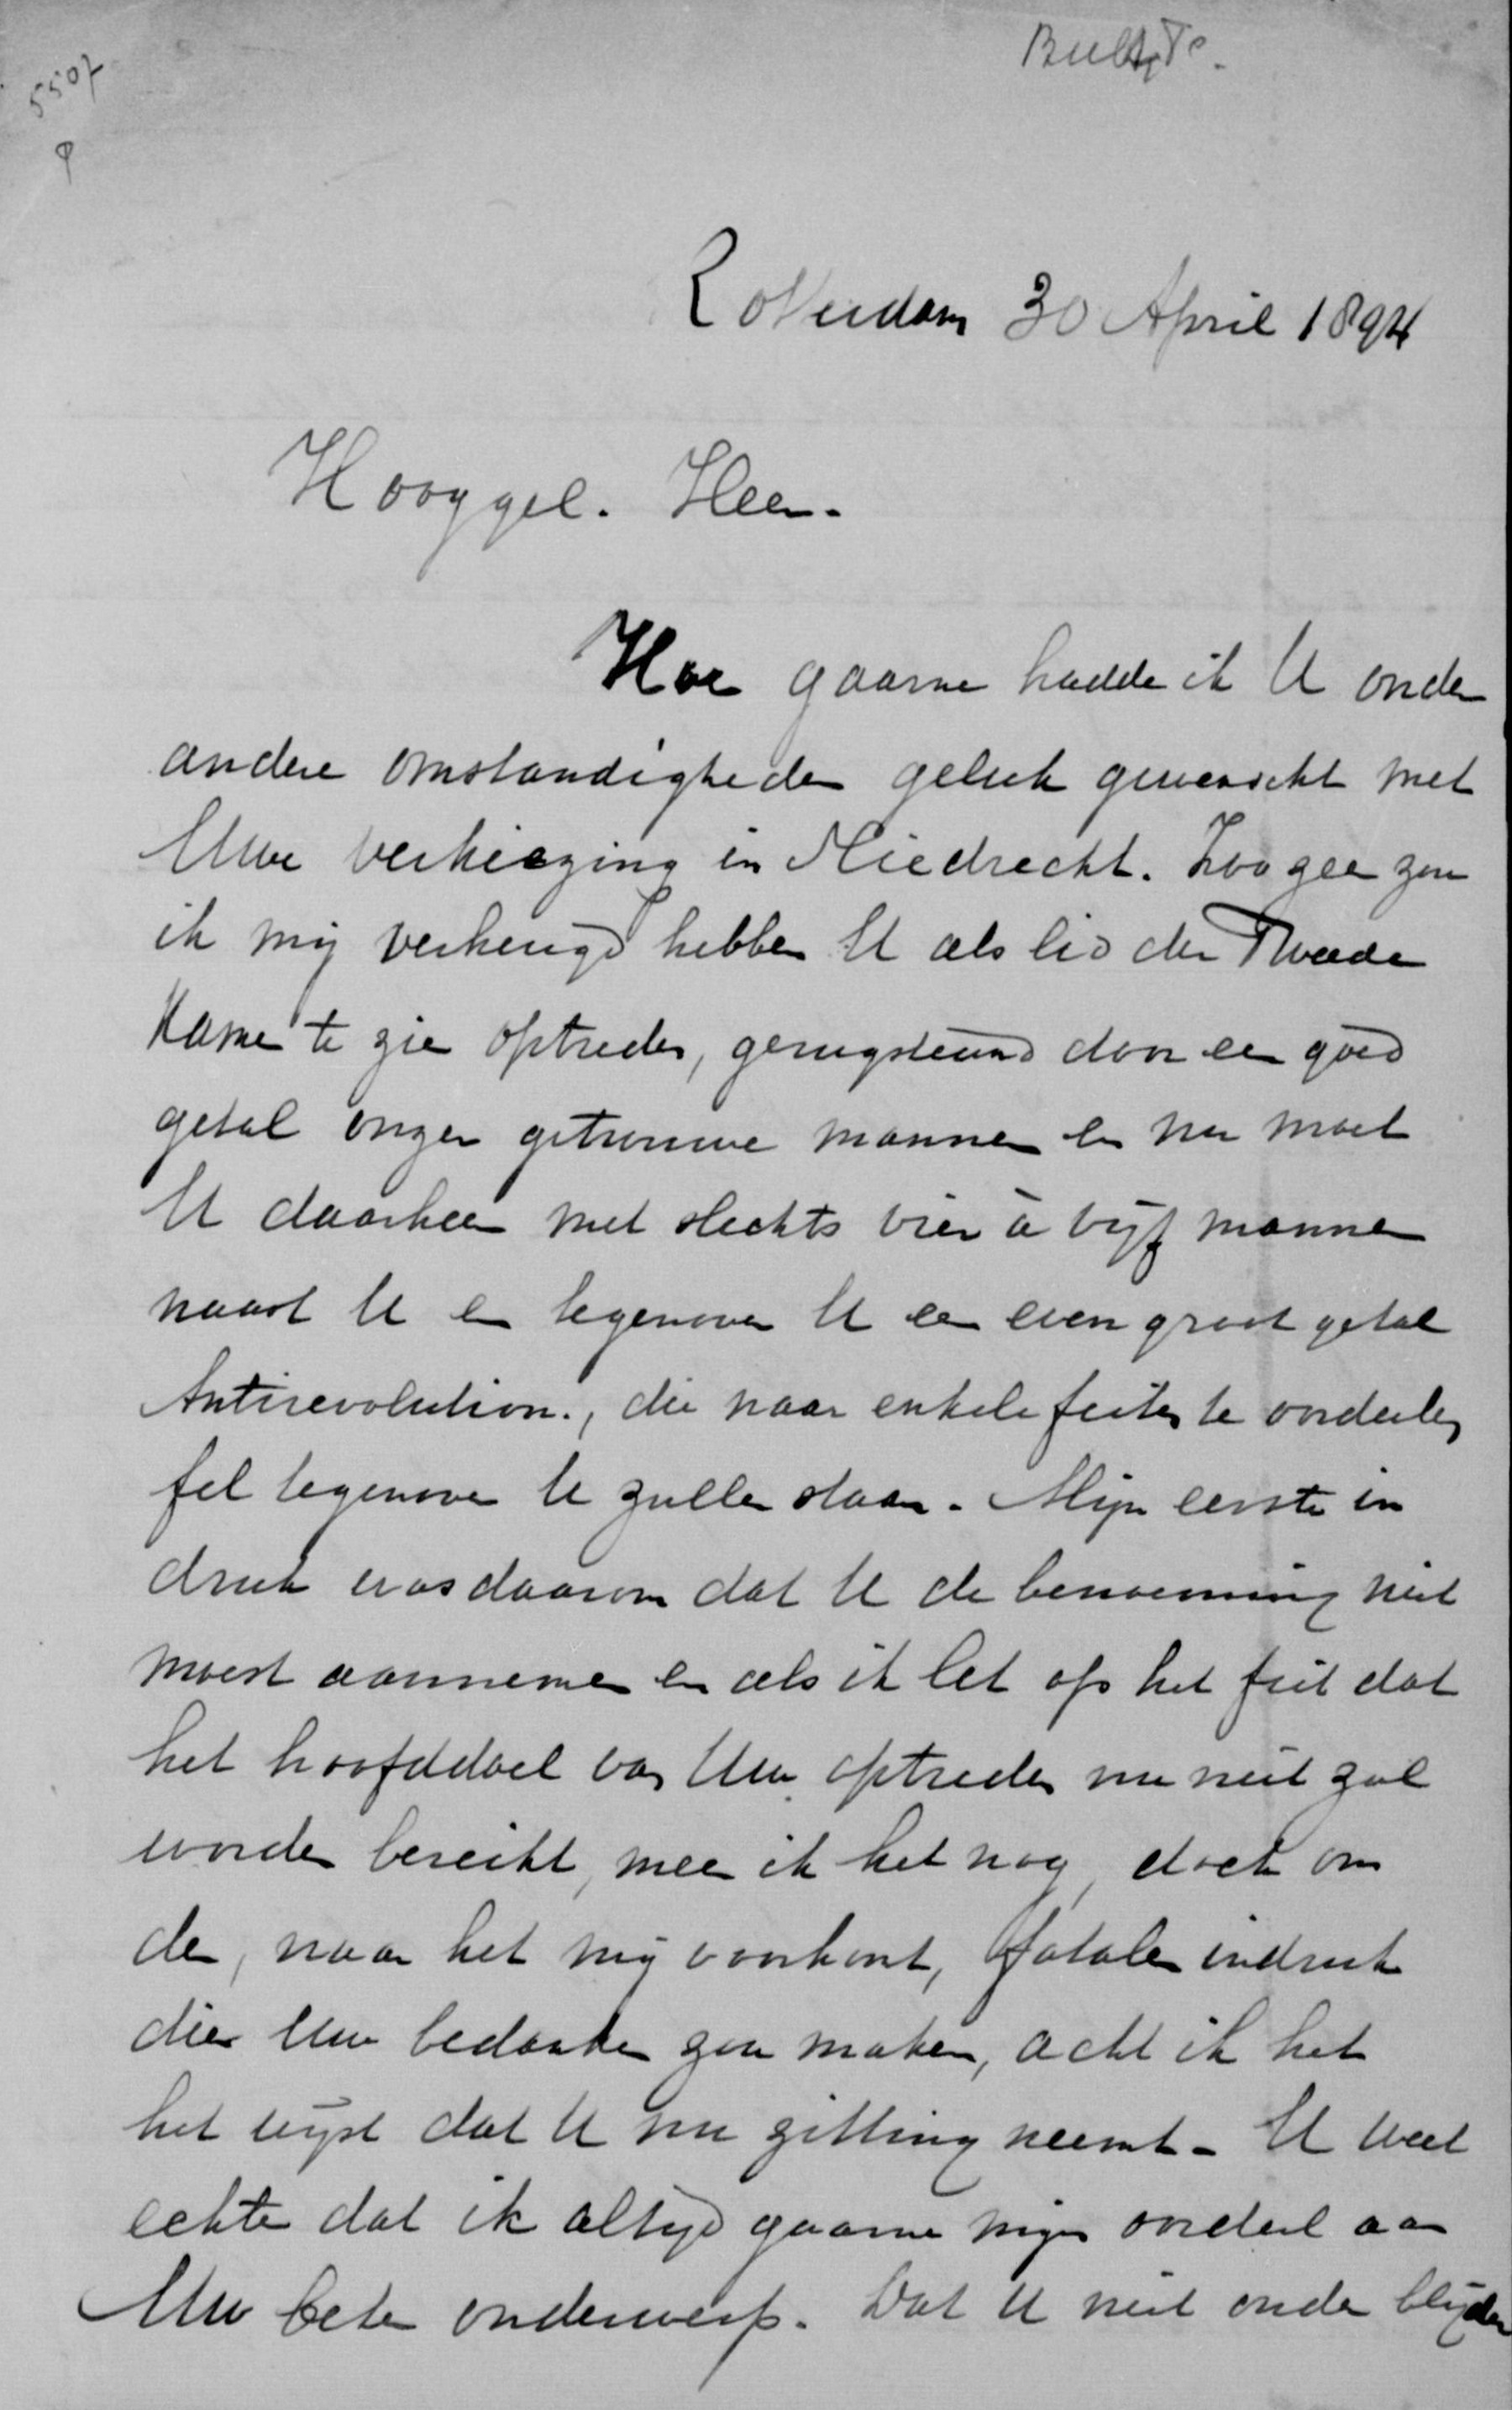 5507
Rotterdam 30 April 1894
Hooggel. Heer.
Hoe gaarne hadde ik U onder
andere omstandigheden geluk gewenscht met
Uwe verkiezing in Miedrecht. Zoo zeer zou
ik mij verheugd hebben U als lid der Tweede
Kamer te zien optreden, gerugsteund door een goed
getal onzer getrouwe mannen en nu moet
U daarheen met slechts vier à vijf mannen
naast U en tegenover U een even groot getal
Antirevolution., die naar enkele feiten te oordeelen
fel tegenover U zullen staan. Mijn eerste in
druk was daarom dat U de benoeming niet
moest aannemen en als ik let op het feit dat
het hoofddoel van Uw optreden nu niet zal
worden bereikt, meen ik het nog, doch om
den, naar het mij voorkomt, fatalen indruk
dien Uw bedanken zou maken, acht ik het
het wijst dat U nu zitting neemt. U weet
echter dat ik altijd gaarne mijn oordeel aan
Uw beter onderwerp. Dat U niet onder blijder